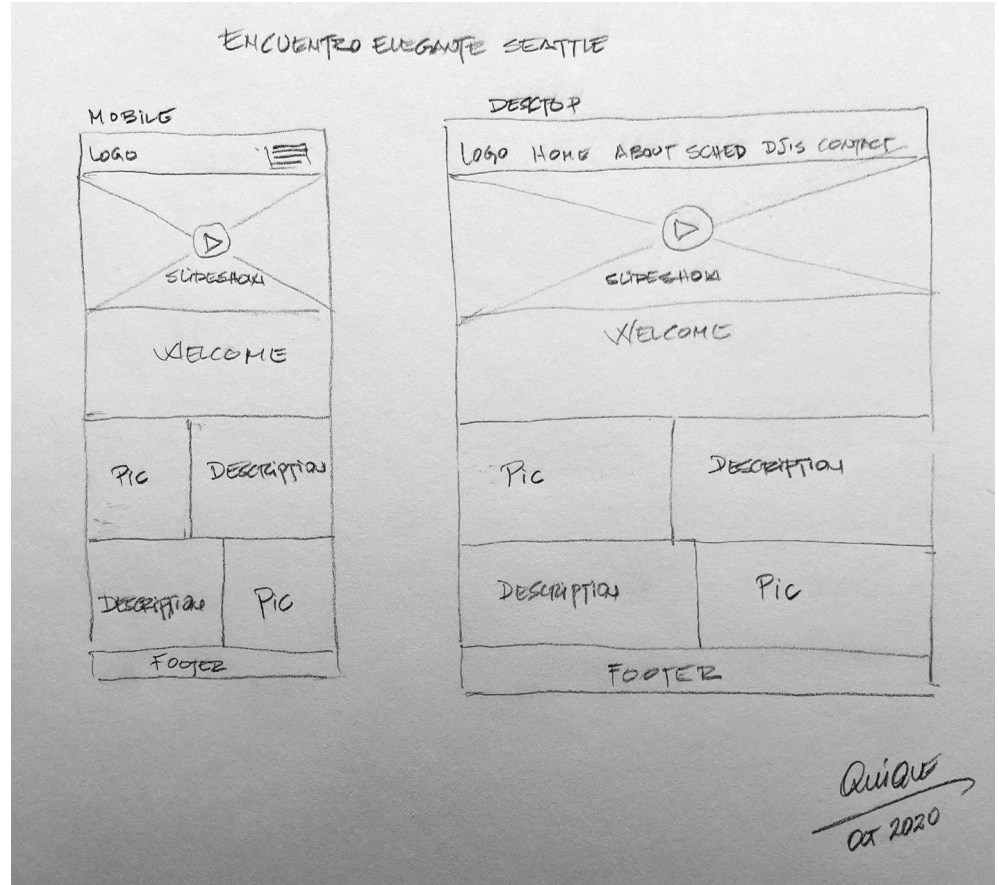 ENCUENTRO ELEGANTE SEATTLE
MOBILE
LOGO
SLIDESHOW
WELCOME
PIC DESCRIPTION
DESCRIPTION PIC
FOOTER
DESCTOP
LOGO HOME ABOUT SCHED DJ'S CONTACT
SLIDESHOW
WELCOME
PIC DESCRIPTION
DESCRIPTION PIC
FOOTER
QUIQUE
OCT 2020